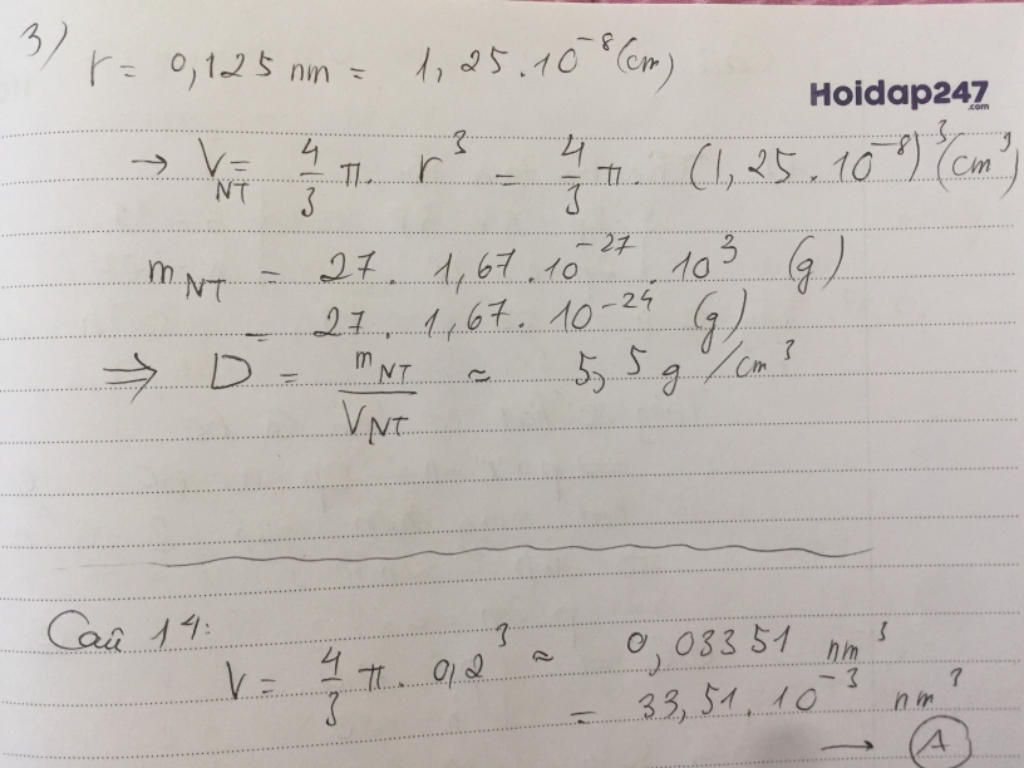 3)
r = 0,125 nm = 1,25.10⁻⁸ (cm)
Hoidap247
.com
→ V_NT = 4/3 π. r³ = 4/3 π. (1,25.10⁻⁸)³ (cm³)
m_NT = 27. 1,67.10⁻²⁷.10³ (g)
= 27. 1,67.10⁻²⁴ (g)
⇒ D = m_NT/V_NT ≈ 5,5 g/cm³
Câu 14:
V = 4/3 π. 0,2³ ≈ 0,03351 nm³
= 33,51.10⁻³ nm³
→ A